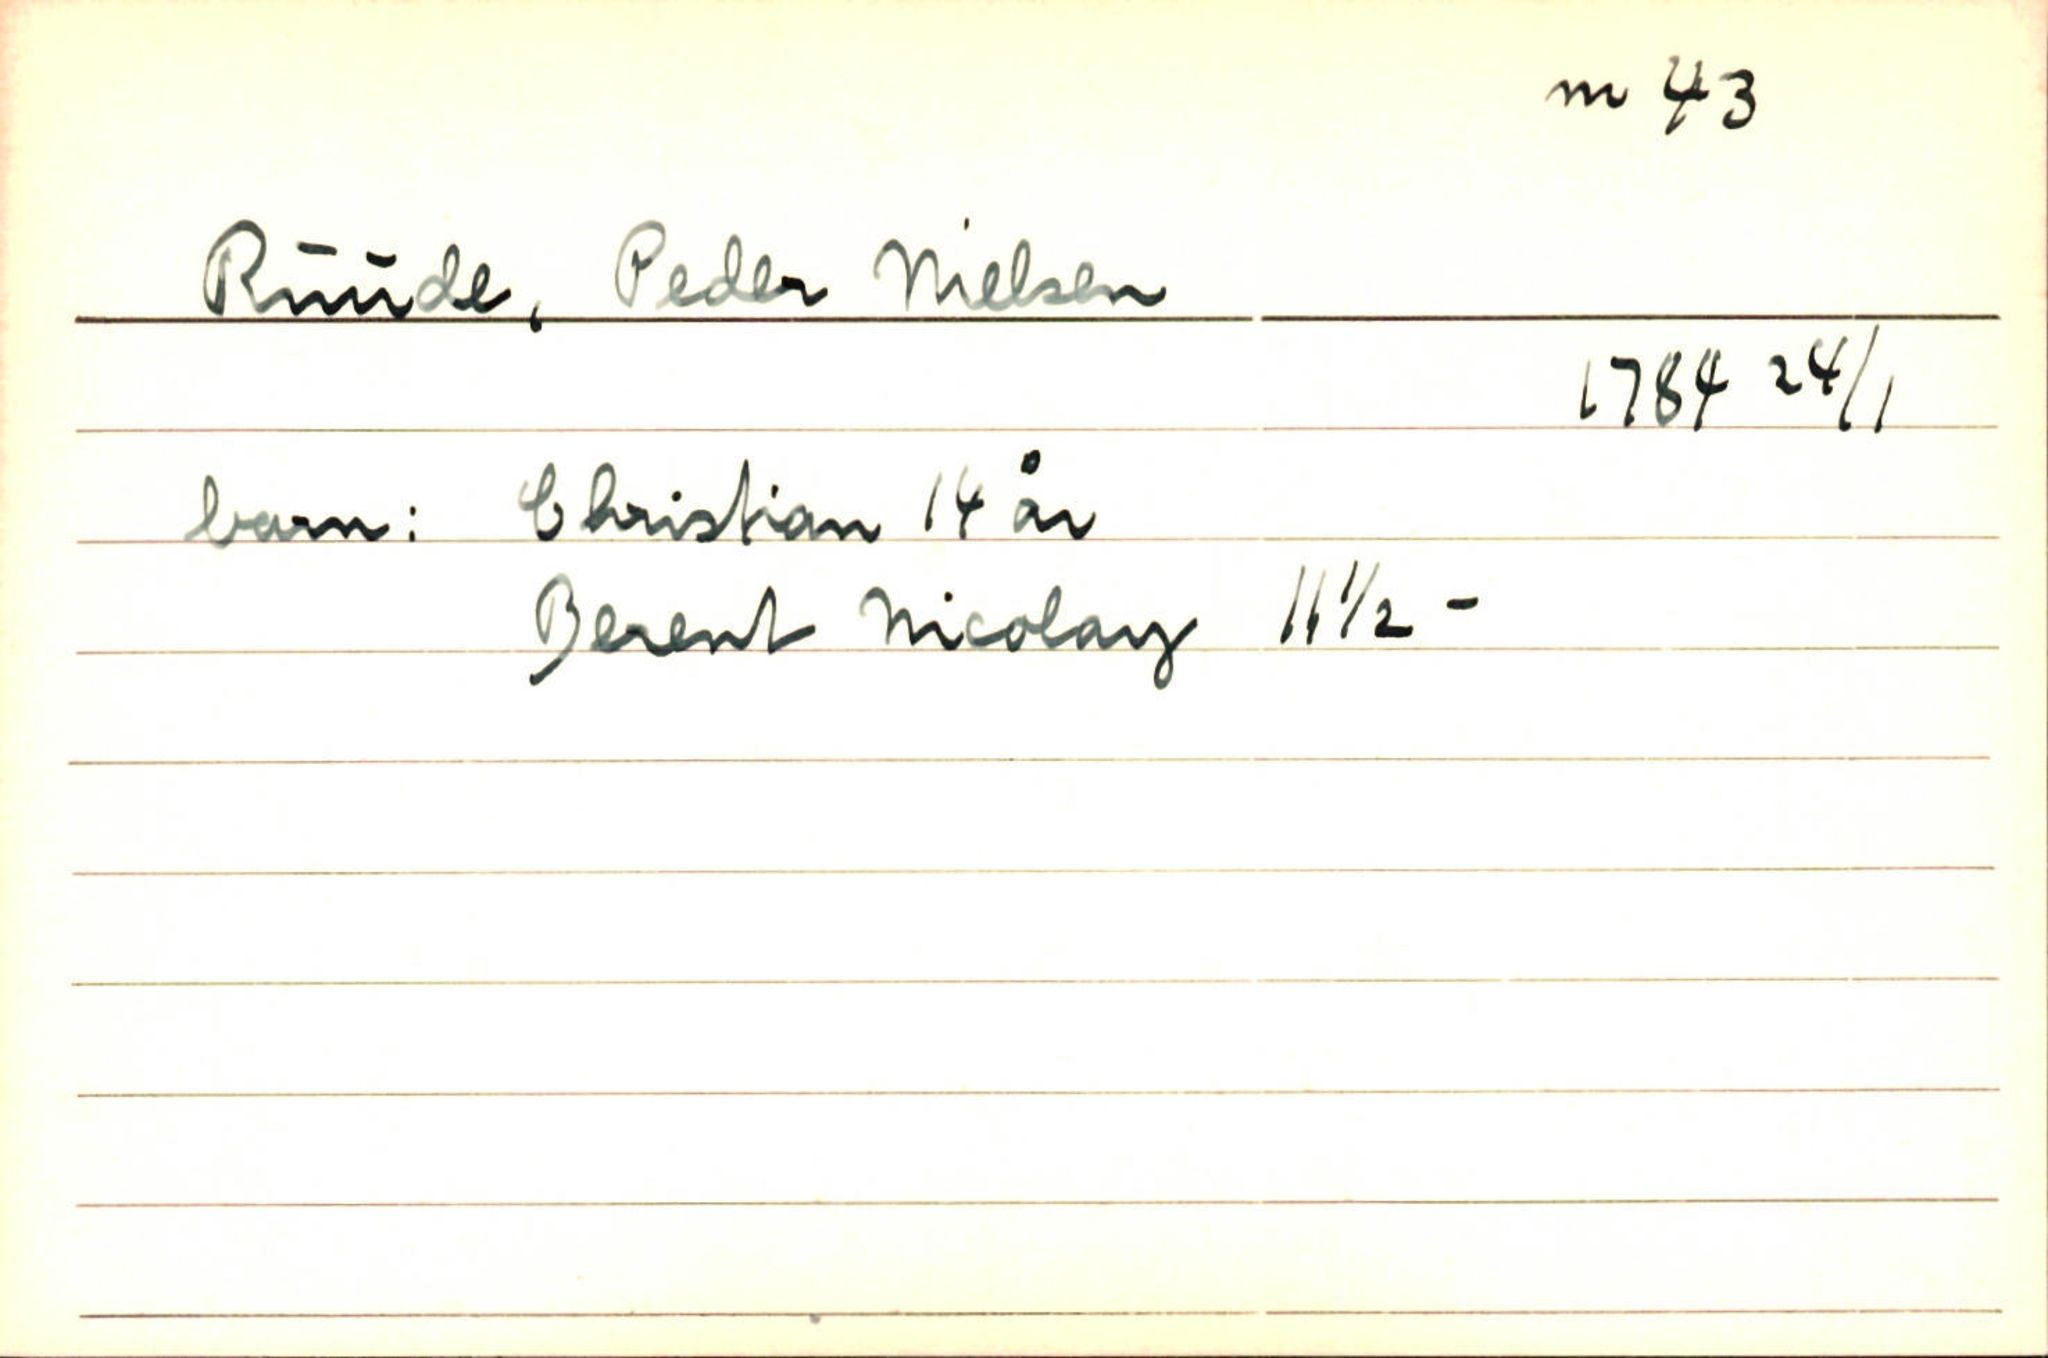 m 43
Ruude, Peder Nielsen
1784 24/1
barn: Christian 14 år
Berent Nicolay 11 1/2 -